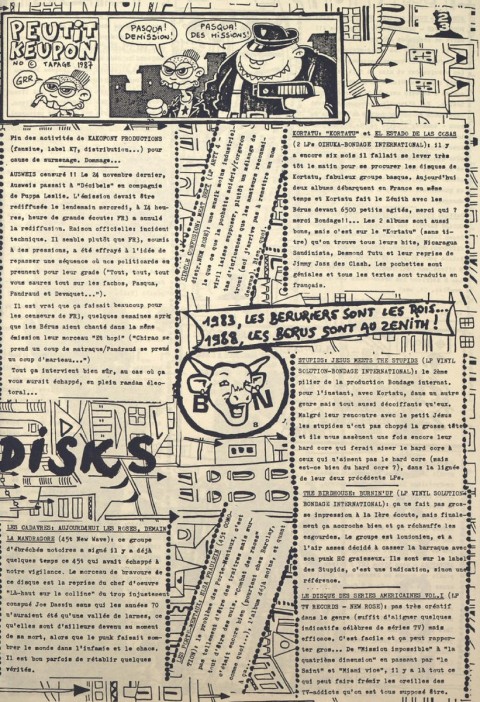 PEUTIT
KEUPON
NO © TAPAGE 1987
GRR
PASQUA!
DEMISSION!
PASQUA!
DES MISSIONS!
23
Fin des activités de KAKOPONY PRODUCTIONS
(fanzine, label K7, distribution...) pour
cause de surmenage. Dommage...
AUSWEIS censuré !! le 24 novembre dernier,
Ausweis passait à "Décibels" en compagnie
de Puppa Leslie. L'émission devait être
rediffusée le lendemain mercredi, à 24
heures, heure de grande écoute: FR3 a annulé
la rediffusion. Raison officielle: incident
technique. Il semble plutôt que FR3, soumis
à des pressions, a été effrayé à l'idée de
repasser une séquence où nos politicards en
prennent pour leur grade ("Tout, tout, tout
vous saurez tout sur les fachos, Pasqua,
Pandraud et Devaquet...").
Il est vrai que ça faisait beaucoup pour
les censeurs de FR3, quelques semaines après
que les Bérus aient chanté dans la même
émission leur morceau "Et hop!" ("Chirac se
prend un coup de matraque/Pandraud se prend
un coup d'marteau...")
Tout ça intervient bien sûr, au cas où ça
vous aurait échappé, en plein ramdam élec-
toral...
KORTATU: "KORTATU" et EL ESTADO DE LAS COSAS
(2 LPs OIHUKA-BONDAGE INTERNATIONAL): il y
a encore six mois il fallait se lever très
tôt le matin pour se procurer les disques de
Kortatu, fabuleux groupe basque. Aujourd'hui
deux albums débarquent en France en même
temps et Kortatu fait le Zénith avec les
Bérus devant 6500 petits agités, merci qui ?
merci Bondage!... Les 2 albums sont aussi
bons, mais c'est sur le "Kortatu" (sans ti-
tre) qu'on trouve tous leurs hits, Nicaragua
Sandinista, Desmond Tutu et leur reprise de
Jimmy Jazz des Clash. Les pochettes sont
géniales et tous les textes sont traduits en
français.
1983, LES BERURIERS SONT LES ROIS...
1988, LES BERUS SONT AU ZENITH!
B N
8
STUPIDS: JESUS MEETS THE STUPIDS (LP VINYL
SOLUTION-BONDAGE INTERNATIONAL): le 2ème
pilier de la production Bondage internat.
pour l'instant, avec Kortatu, dans un autre
genre mais tout aussi décoiffants qu'eux.
Malgré leur rencontre avec le petit Jésus
les stupides n'ont pas choppé la grosse tête
et ils nous assènent une fois encore leur
hard core qui ferait aimer le hard core à
ceux qui n'aisent pas le hard core (mais
est-ce bien du hard core ?), dans la lignée
de leur deux précédents LPs.
THE BIRDHOUSE: BURNIN'UP (LP VINYL SOLUTION-
BONDAGE INTERNATIONAL): ça ne fait pas gros-
se impression à la 1ère écoute, mais finale-
ment ça accroche bien et ça réchauffe les
esgourdes. Le groupe est londonien, et a
l'air assez décidé à casser la barraque avec
son punk HC graisseux. Ils sont sur le label
des Stupids, c'est une indication, sinon une
référence.
LE DISQUE DES SERIES AMERICAINES VOL.I (LP
TV RECORDS - NEW ROSE): pas très créatif
dans le genre (suffit d'aligner quelques
indicatifs célèbres de séries TV) mais
efficace. C'est facile et ça peut rappor-
ter gros... De "Mission impossible" à "la
quatrième dimension" en passant par "le
Saint" et "Miami vice", il y a là tout ce
qui peut faire frémir les oreilles des
TV-addicts qu'on est tous supposé être.
DISKS
LES CADAVRES: AUJOURD'HUI LES ROSES, DEMAIN
LA MANDRAGORE (45t New Wave): ce groupe
d'ébréchés notoires a signé il y a déjà
quelques temps ce 45t qui avait échappé à
notre vigilance. Le morceau de bravoure de
ce disque est la reprise du chef d'oeuvre
"LÀ-haut sur la colline" du trop injustement
conspué Joe Dassin sans qui les années 70
n'auraient été qu'une vallée de larmes, ce
qu'elles sont d'ailleurs devenu au moment
de sa mort, alors que le punk faisait som-
brer le monde dans l'infamie et le chaos.
Il est bon parfois de rétablir quelques
vérités.